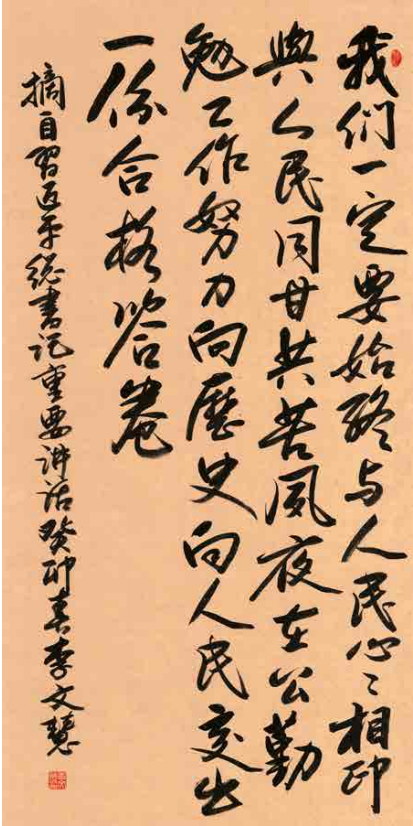 我们一定要始終与人民心〻相印
與人民同甘共苦夙夜在公勤
勉工作努力向歷史向人民交出
一份合格答卷
摘自習近平総書记重要讲话癸卯春李文慧